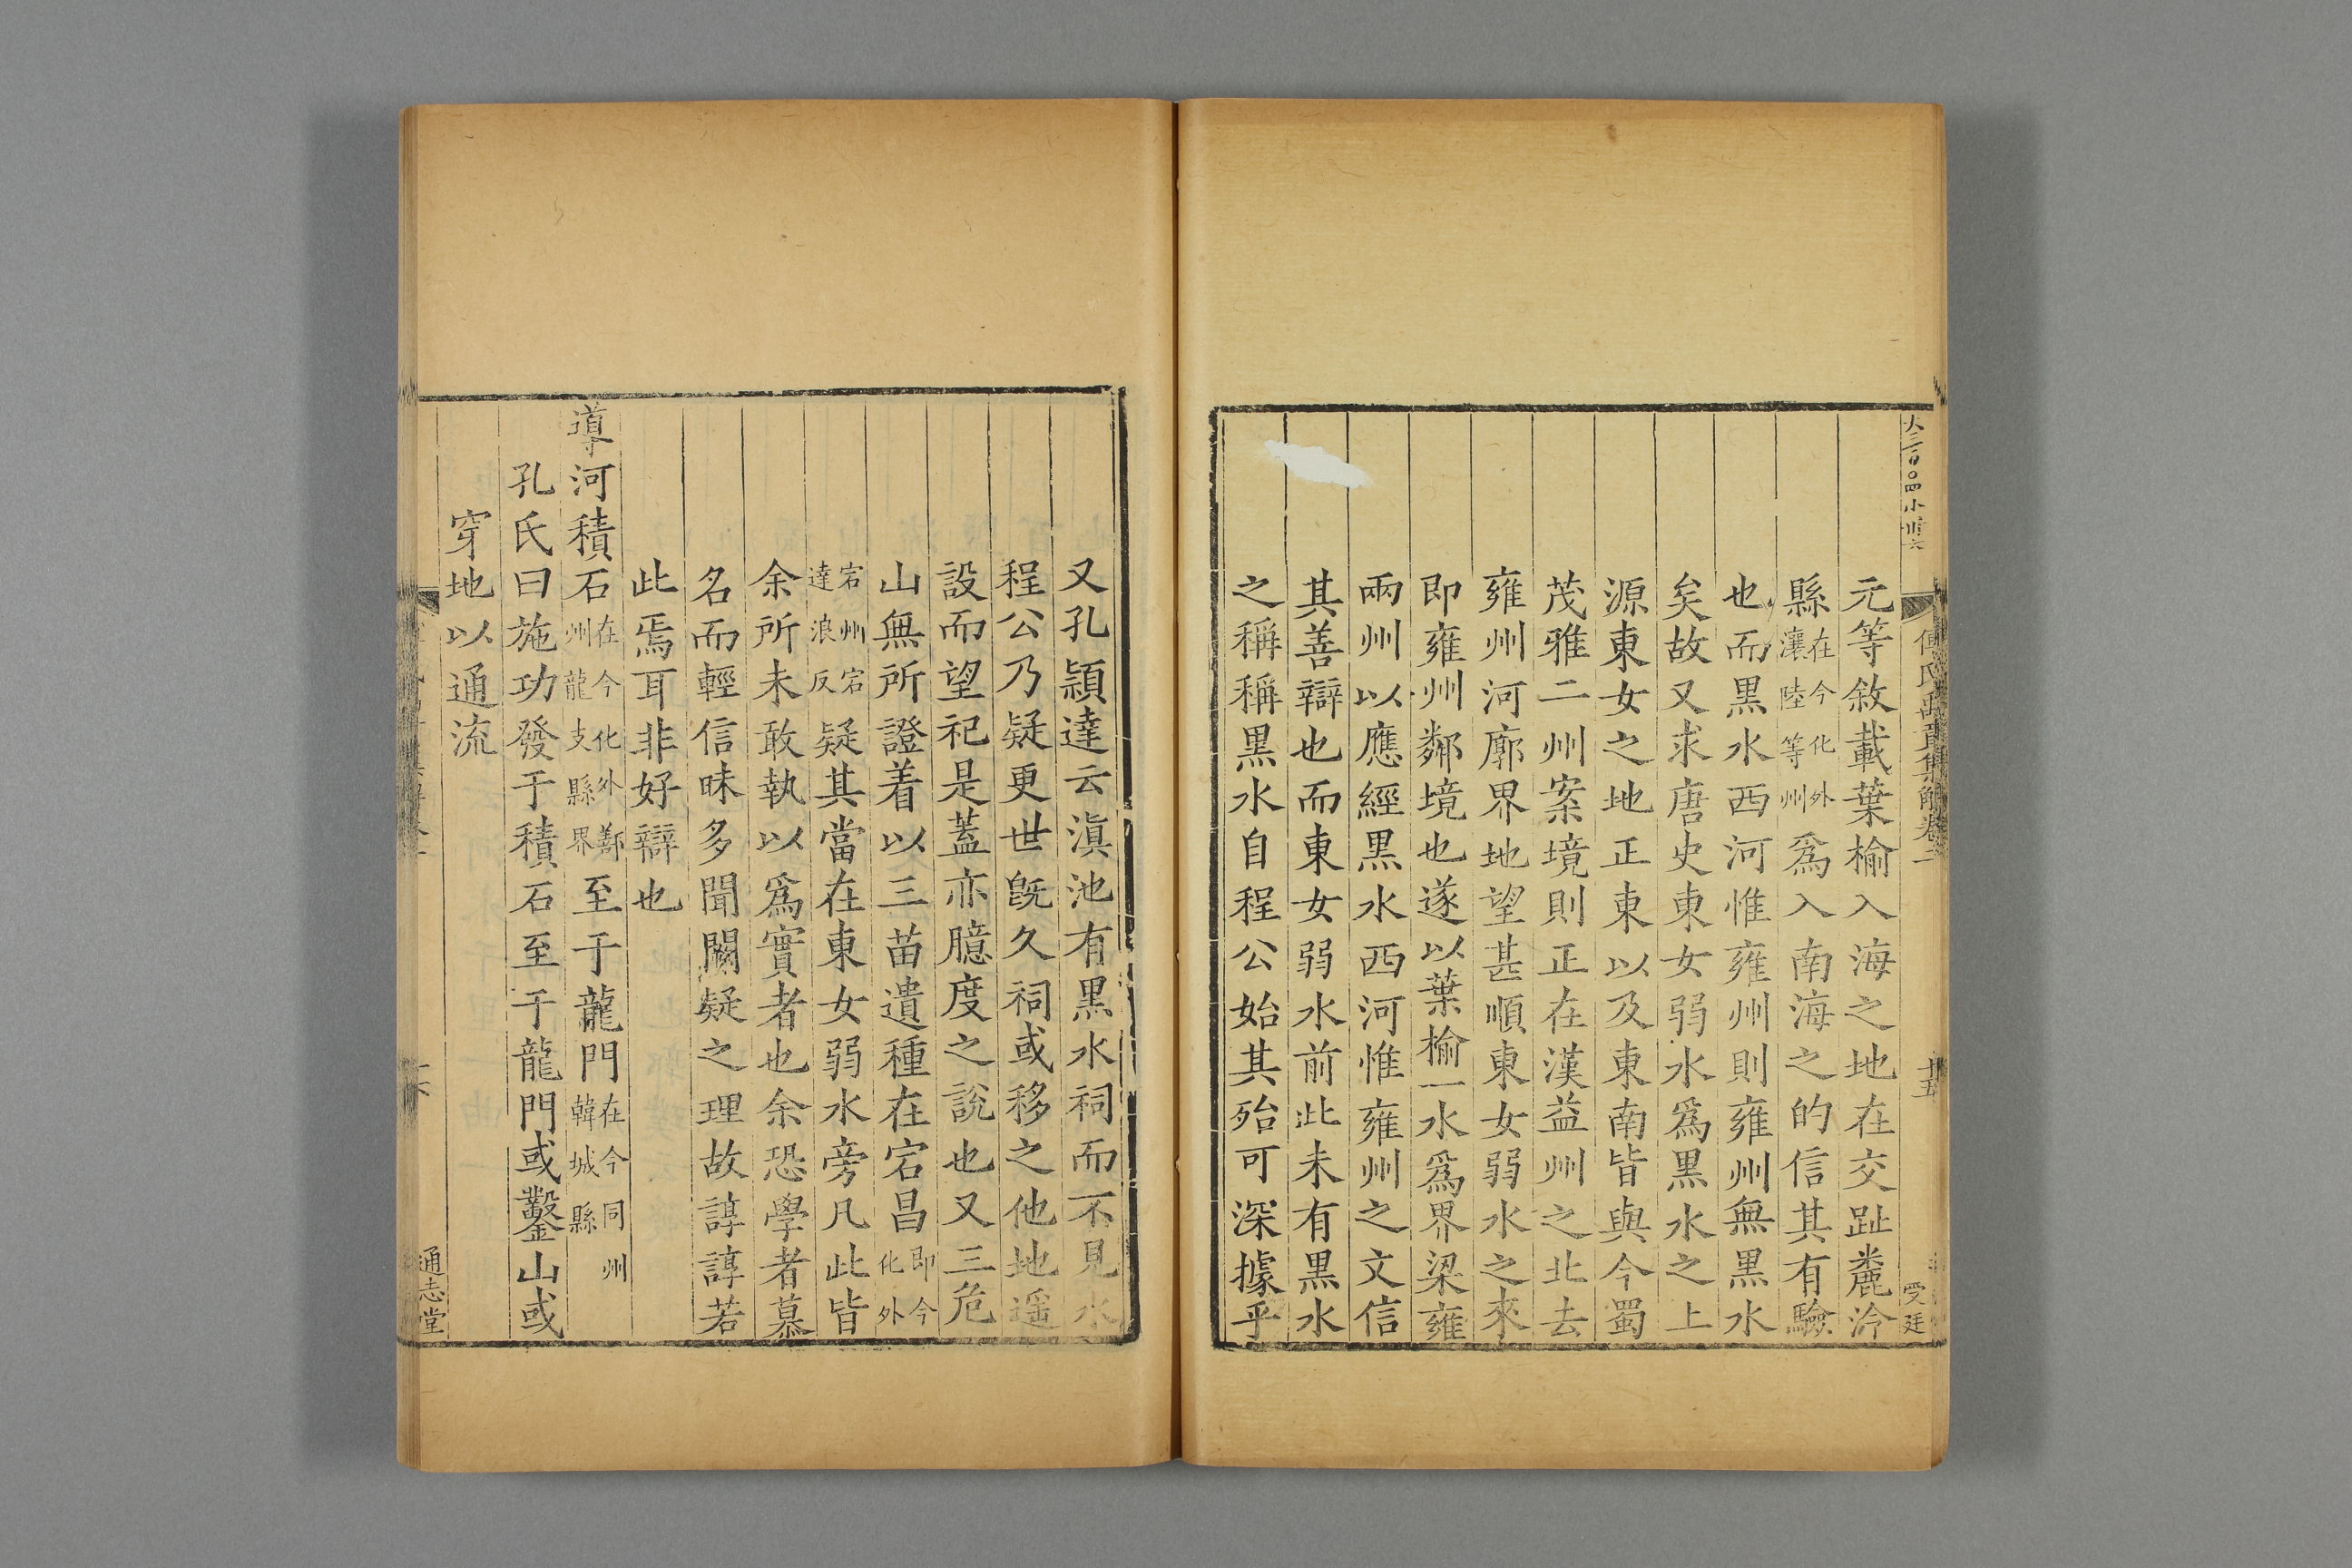 大三百〇四小卅六
傅氏禹貢集解卷二
十五
受廷
元等敘載葉榆入海之地在交趾麊泠
縣在今化外瀼陸等州爲入南海之的信其有驗
也而黑水西河惟雍州則雍州無黑水
矣故又求唐史東女弱水爲黑水之上
源東女之地正東以及東南皆與今蜀
茂雅二州案境則正在漢益州之北去
雍州河廓界地望甚順東女弱水之來
即雍州鄰境也遂以葉榆一水爲界梁雍
兩州以應經黑水西河惟雍州之文信
其善辯也而東女弱水前此未有黑水
之稱稱黑水自程公始其殆可深據乎
又孔頴達云滇池有黑水祠而不見水
程公乃疑更世旣久祠或移之他地遥
設而望祀是蓋亦臆度之說也又三危
山無所證着以三苗遺種在宕昌即今化外
宕州宕達浪反疑其當在東女弱水旁凡此皆
余所未敢執以爲實者也余恐學者慕
名而輕信昧多聞闕疑之理故諄諄若
此焉耳非好辯也
導河積石在今化外鄯州龍支縣界至于龍門在今同州韓城縣
孔氏曰施功發于積石至于龍門或鑿山或
穿地以通流
十六
通志堂